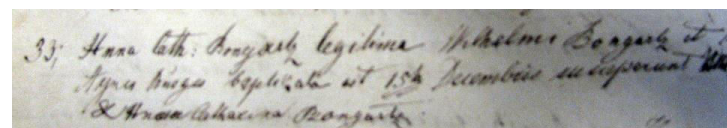 33, Anna Cath: Bongartz legitima Wilhelmi Bongartz et
Agnes baptizata est 15ta Decembris susceperunt
& Anna Catharina Bongartz.